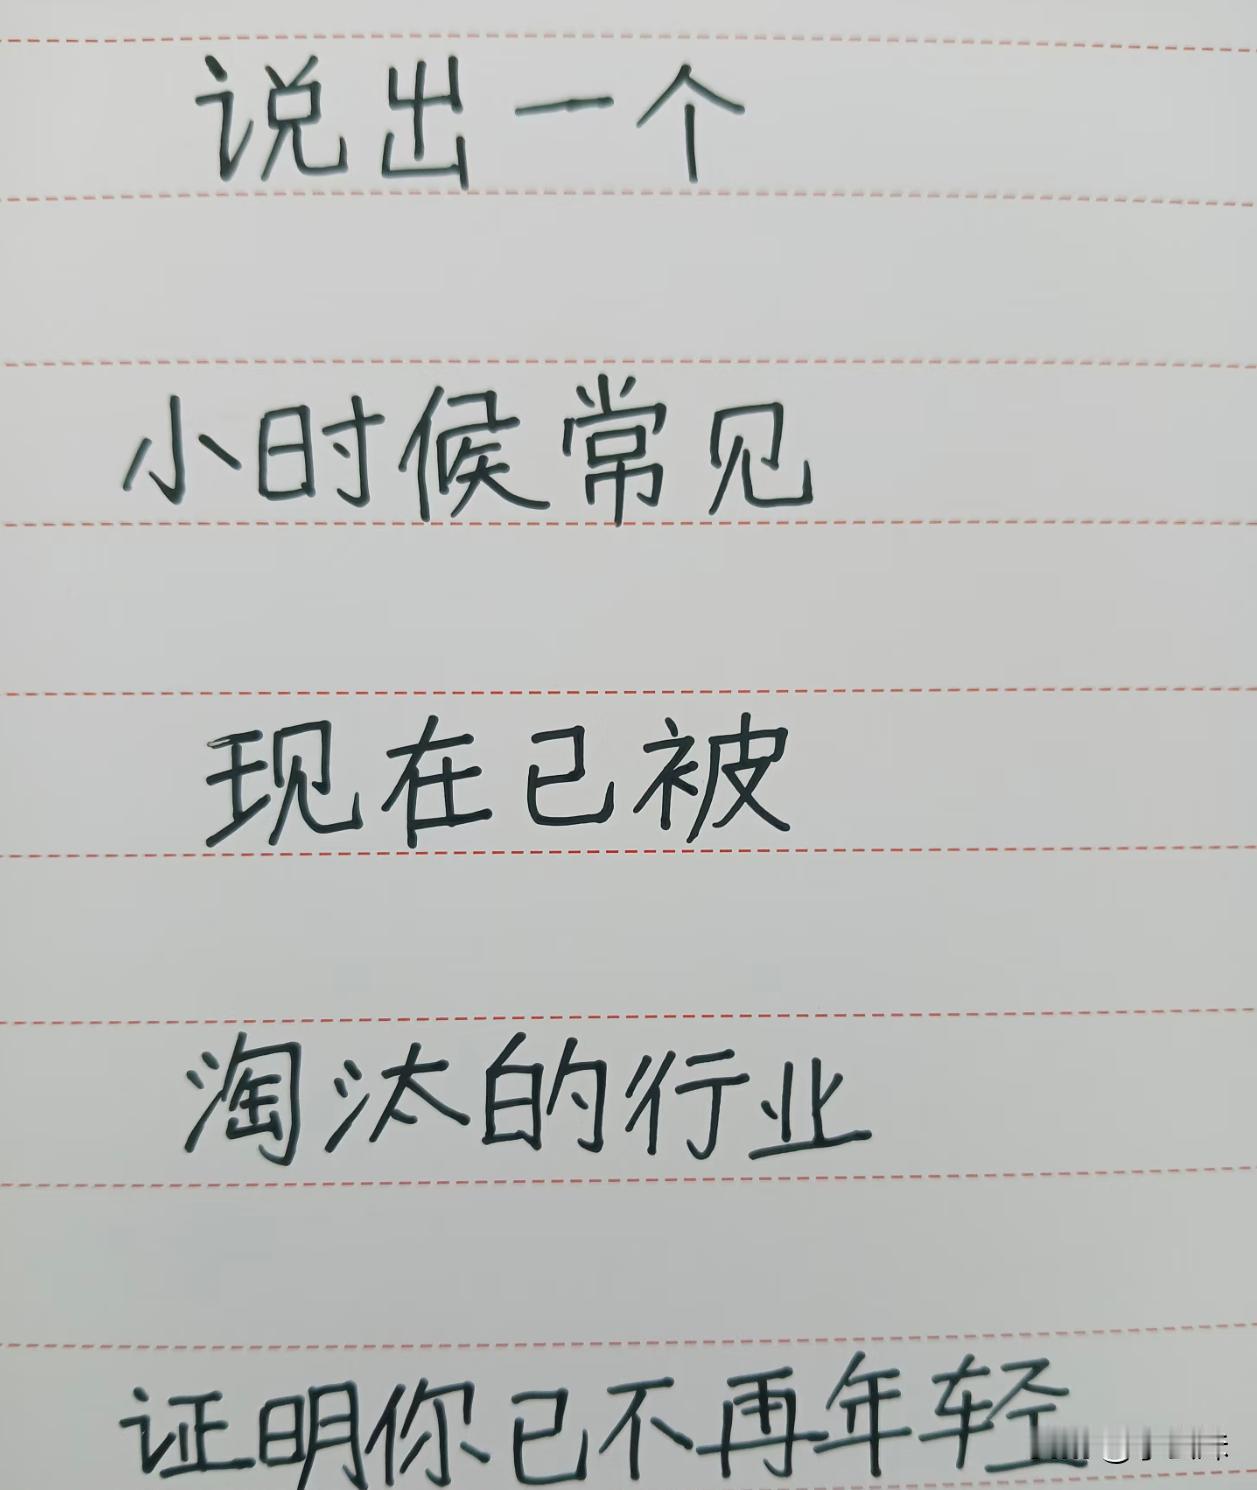 说出一个
小时候常见
现在已被
淘汰的行业
证明你已不再年轻